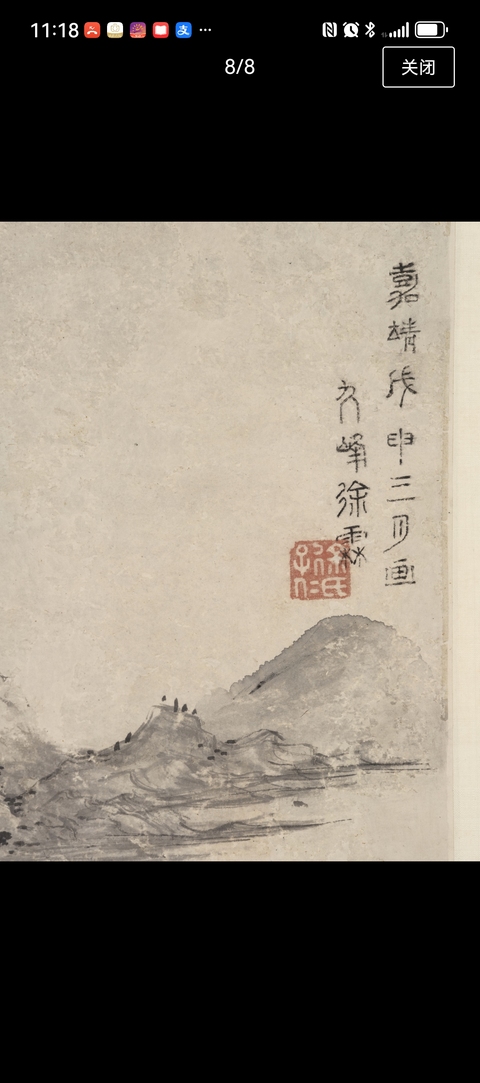 11:18
8/8
关闭
嘉靖戊申三月画
九峰徐霖
徐氏子仁